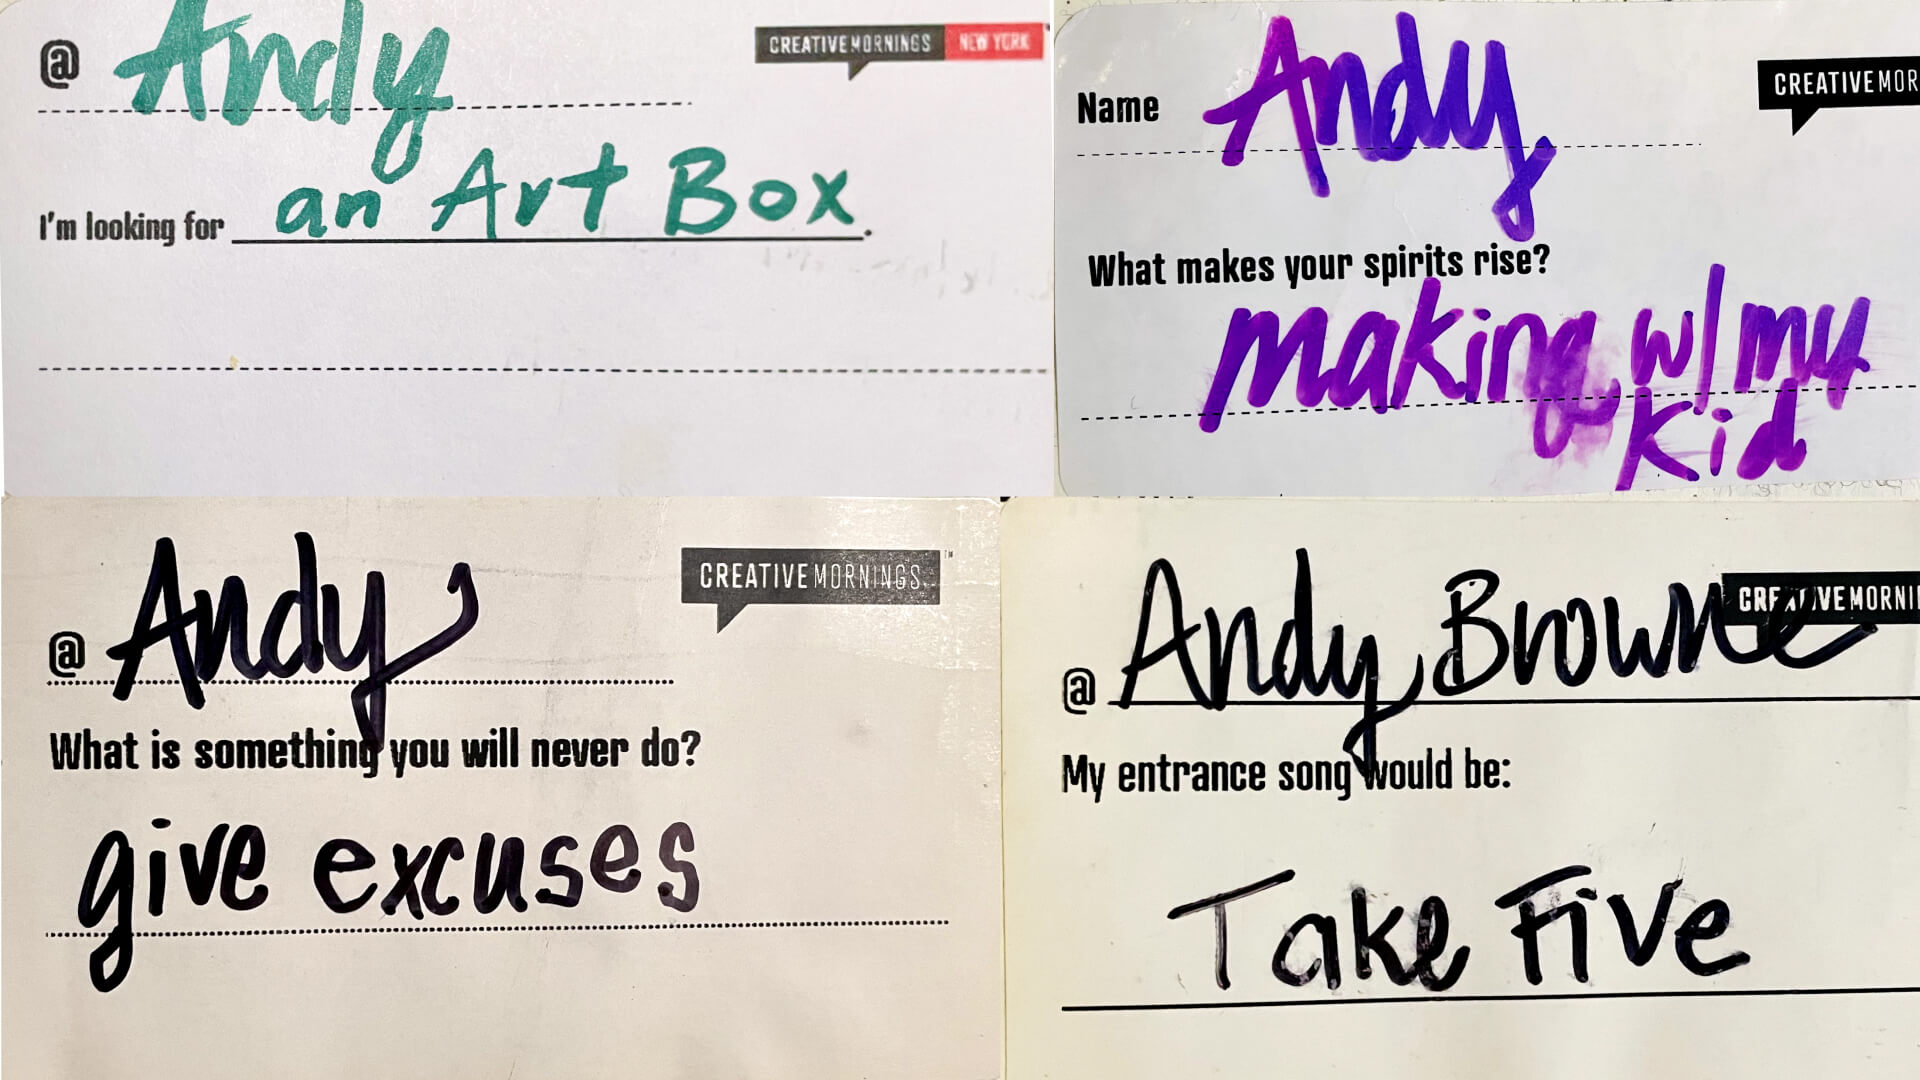 @ Andy
CREATIVEMORNINGS NEW YORK
I'm looking for an Art Box.
Name Andy
CREATIVEMOR
What makes your spirits rise?
making w/ my
Kid
@ Andy
CREATIVEMORNINGS™
What is something you will never do?
give excuses
@ Andy Browne
CREATIVEMORNI
My entrance song would be:
Take Five